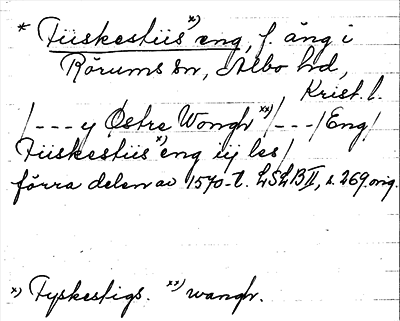 * Tiiskestiis ˣ⁾ eng, f. äng i
Rörums sn, Albo hd,
Krist. l.
/--- y Østre Wongh ˣˣ⁾/---/Eng/
Tiiskestiis ˣ⁾ eng iij les/
förra delen av 1570-t. LSLB II, s. 269. orig.
x) Tyskestigs. xx) wangh.